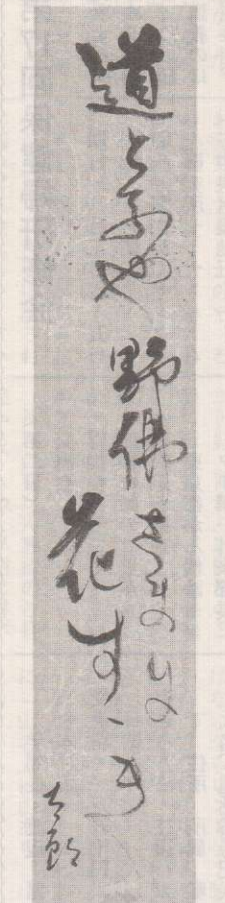 道とふや
野佛さまの
花すゝき